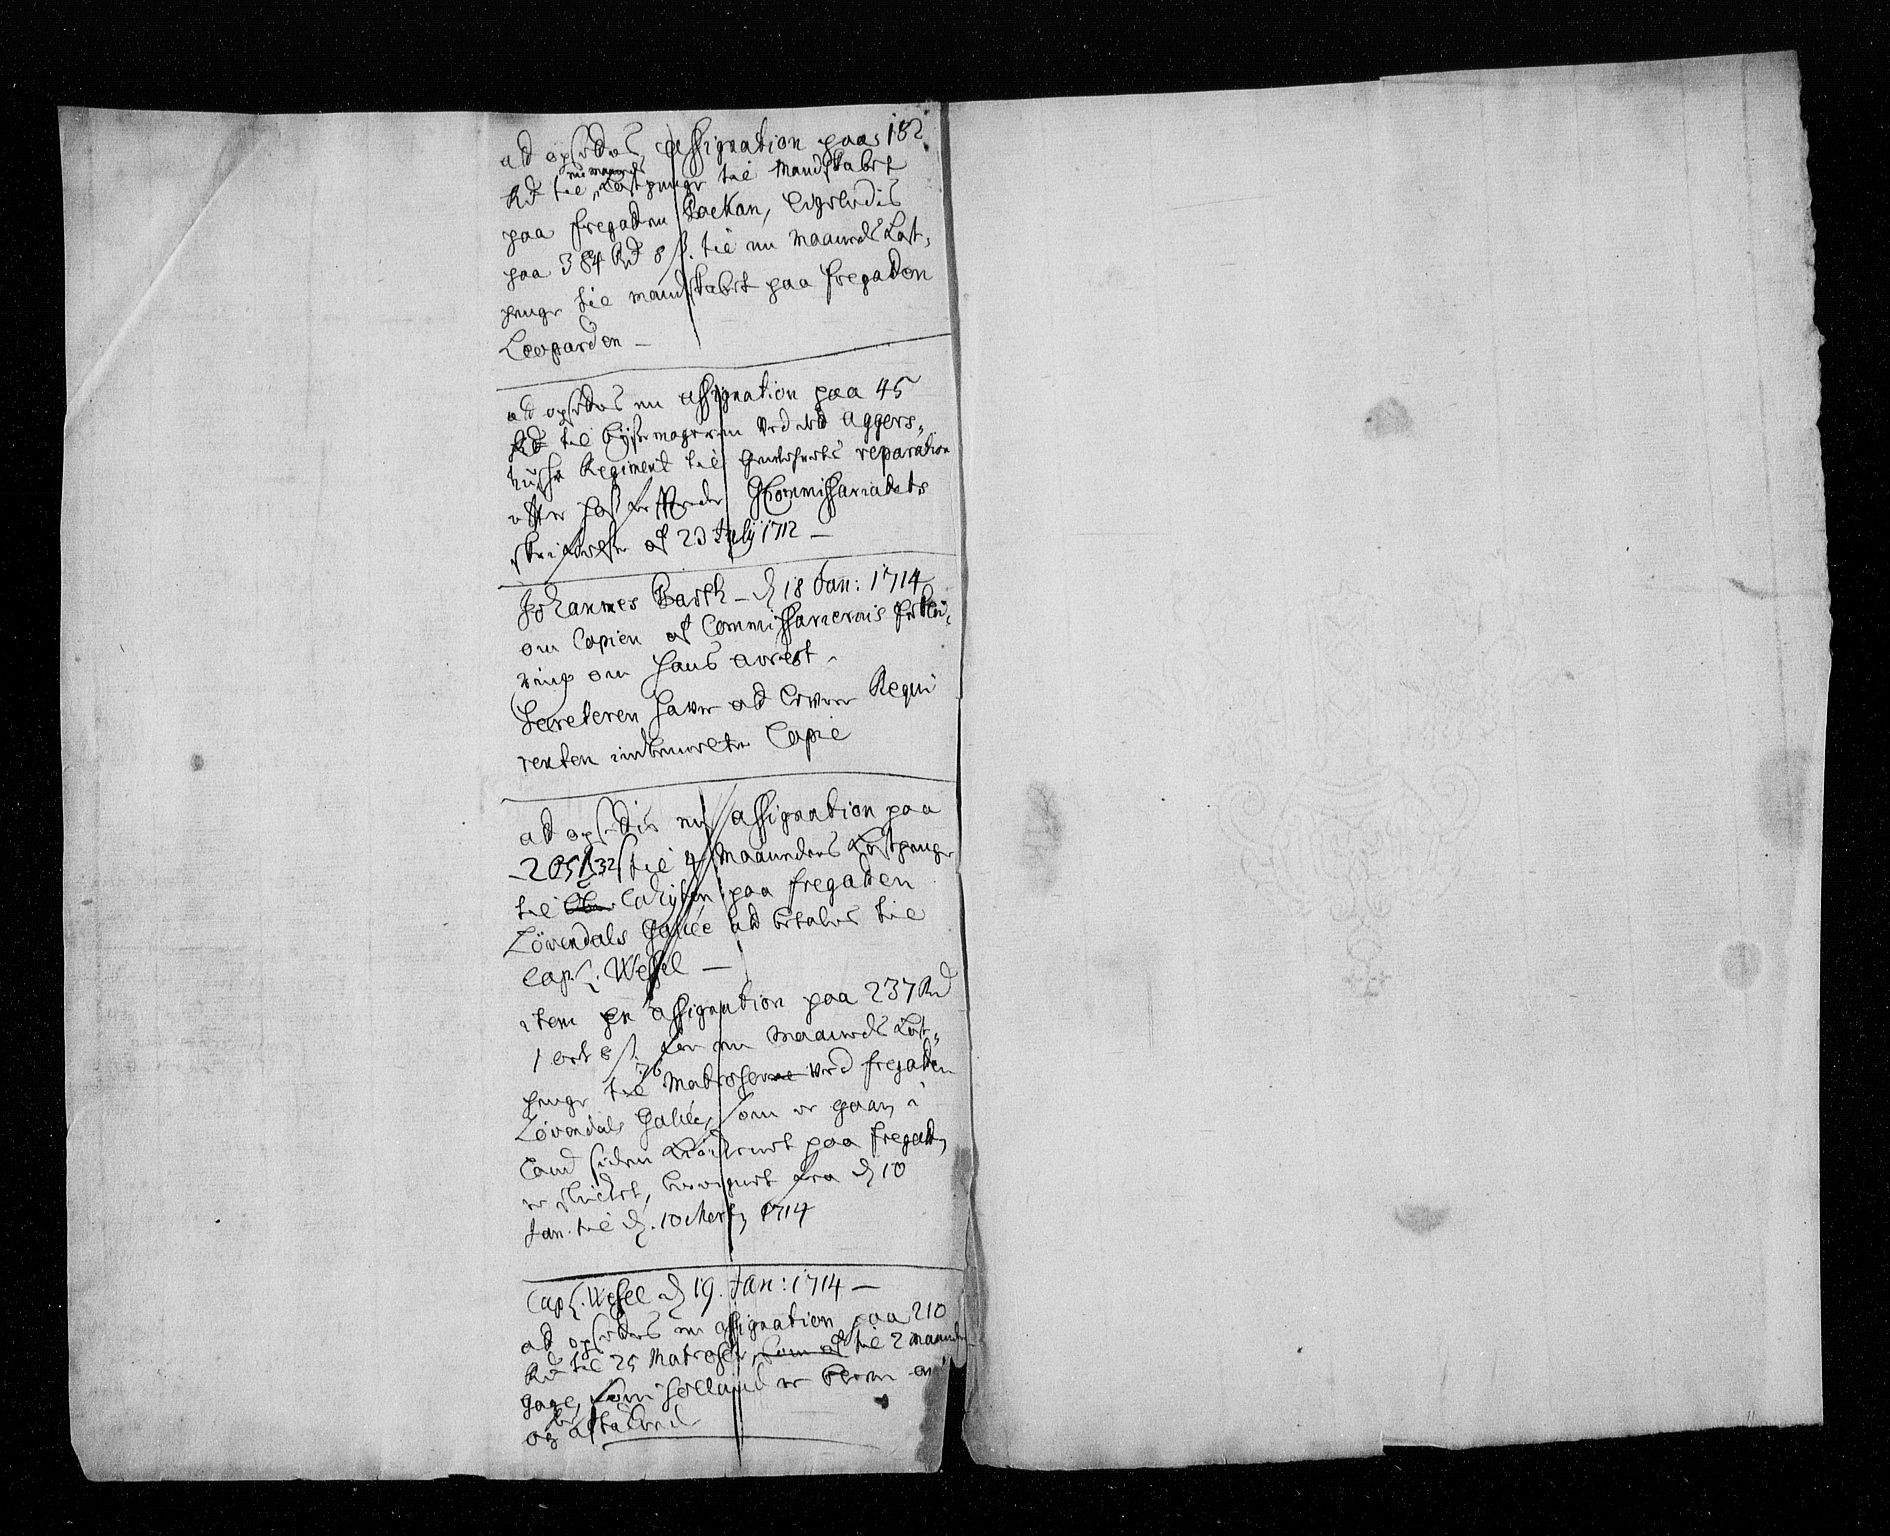 ad opsættes assignation paa 182
Rd til en maaneds Kostpenge til Mandskabet
paa fregatten Packan, ligeledis
paa 384 Rd 8 s. til en maaneds Kost,
penge til mandskabet paa fregaden
Leoparden —
ad opsettes en assignation paa 45
Rd til Byssemageren ved det Aggers,
husiske Regiment til geværets reparation
efter Commissariatets
skrivelse af 23 July 1712 —
Johannes Barth – d 18 Jan: 1714
om Copien af Commissariernis erklæ,
ring om hans arrest.
Secreteren haver at levere Requi
renten indbemelte Copie
ad opsettis en assignation paa
205 32 s til 4 Maaneders Kostpenge
til paa fregaden
Løvendals Gallei ad betales til
Capt. Wessel —
item en assignation paa 237 Rd
1 ort 8 s. for en Maaneds Kost,
penge til 76 Matroser ved fregaden
Løvendals Gallei, som er gaaen i
Land siden paa fregaden
er sluttet, beregnet fra d 10
Jan. til d. 10 Marty 1714
Capt. Wessel d 19. Jan: 1714 —
ad opsettes en assignation paa 210
Rd til 25 Matroser, som af til 2 maaneders
gage, som i Holland er bleven an
og